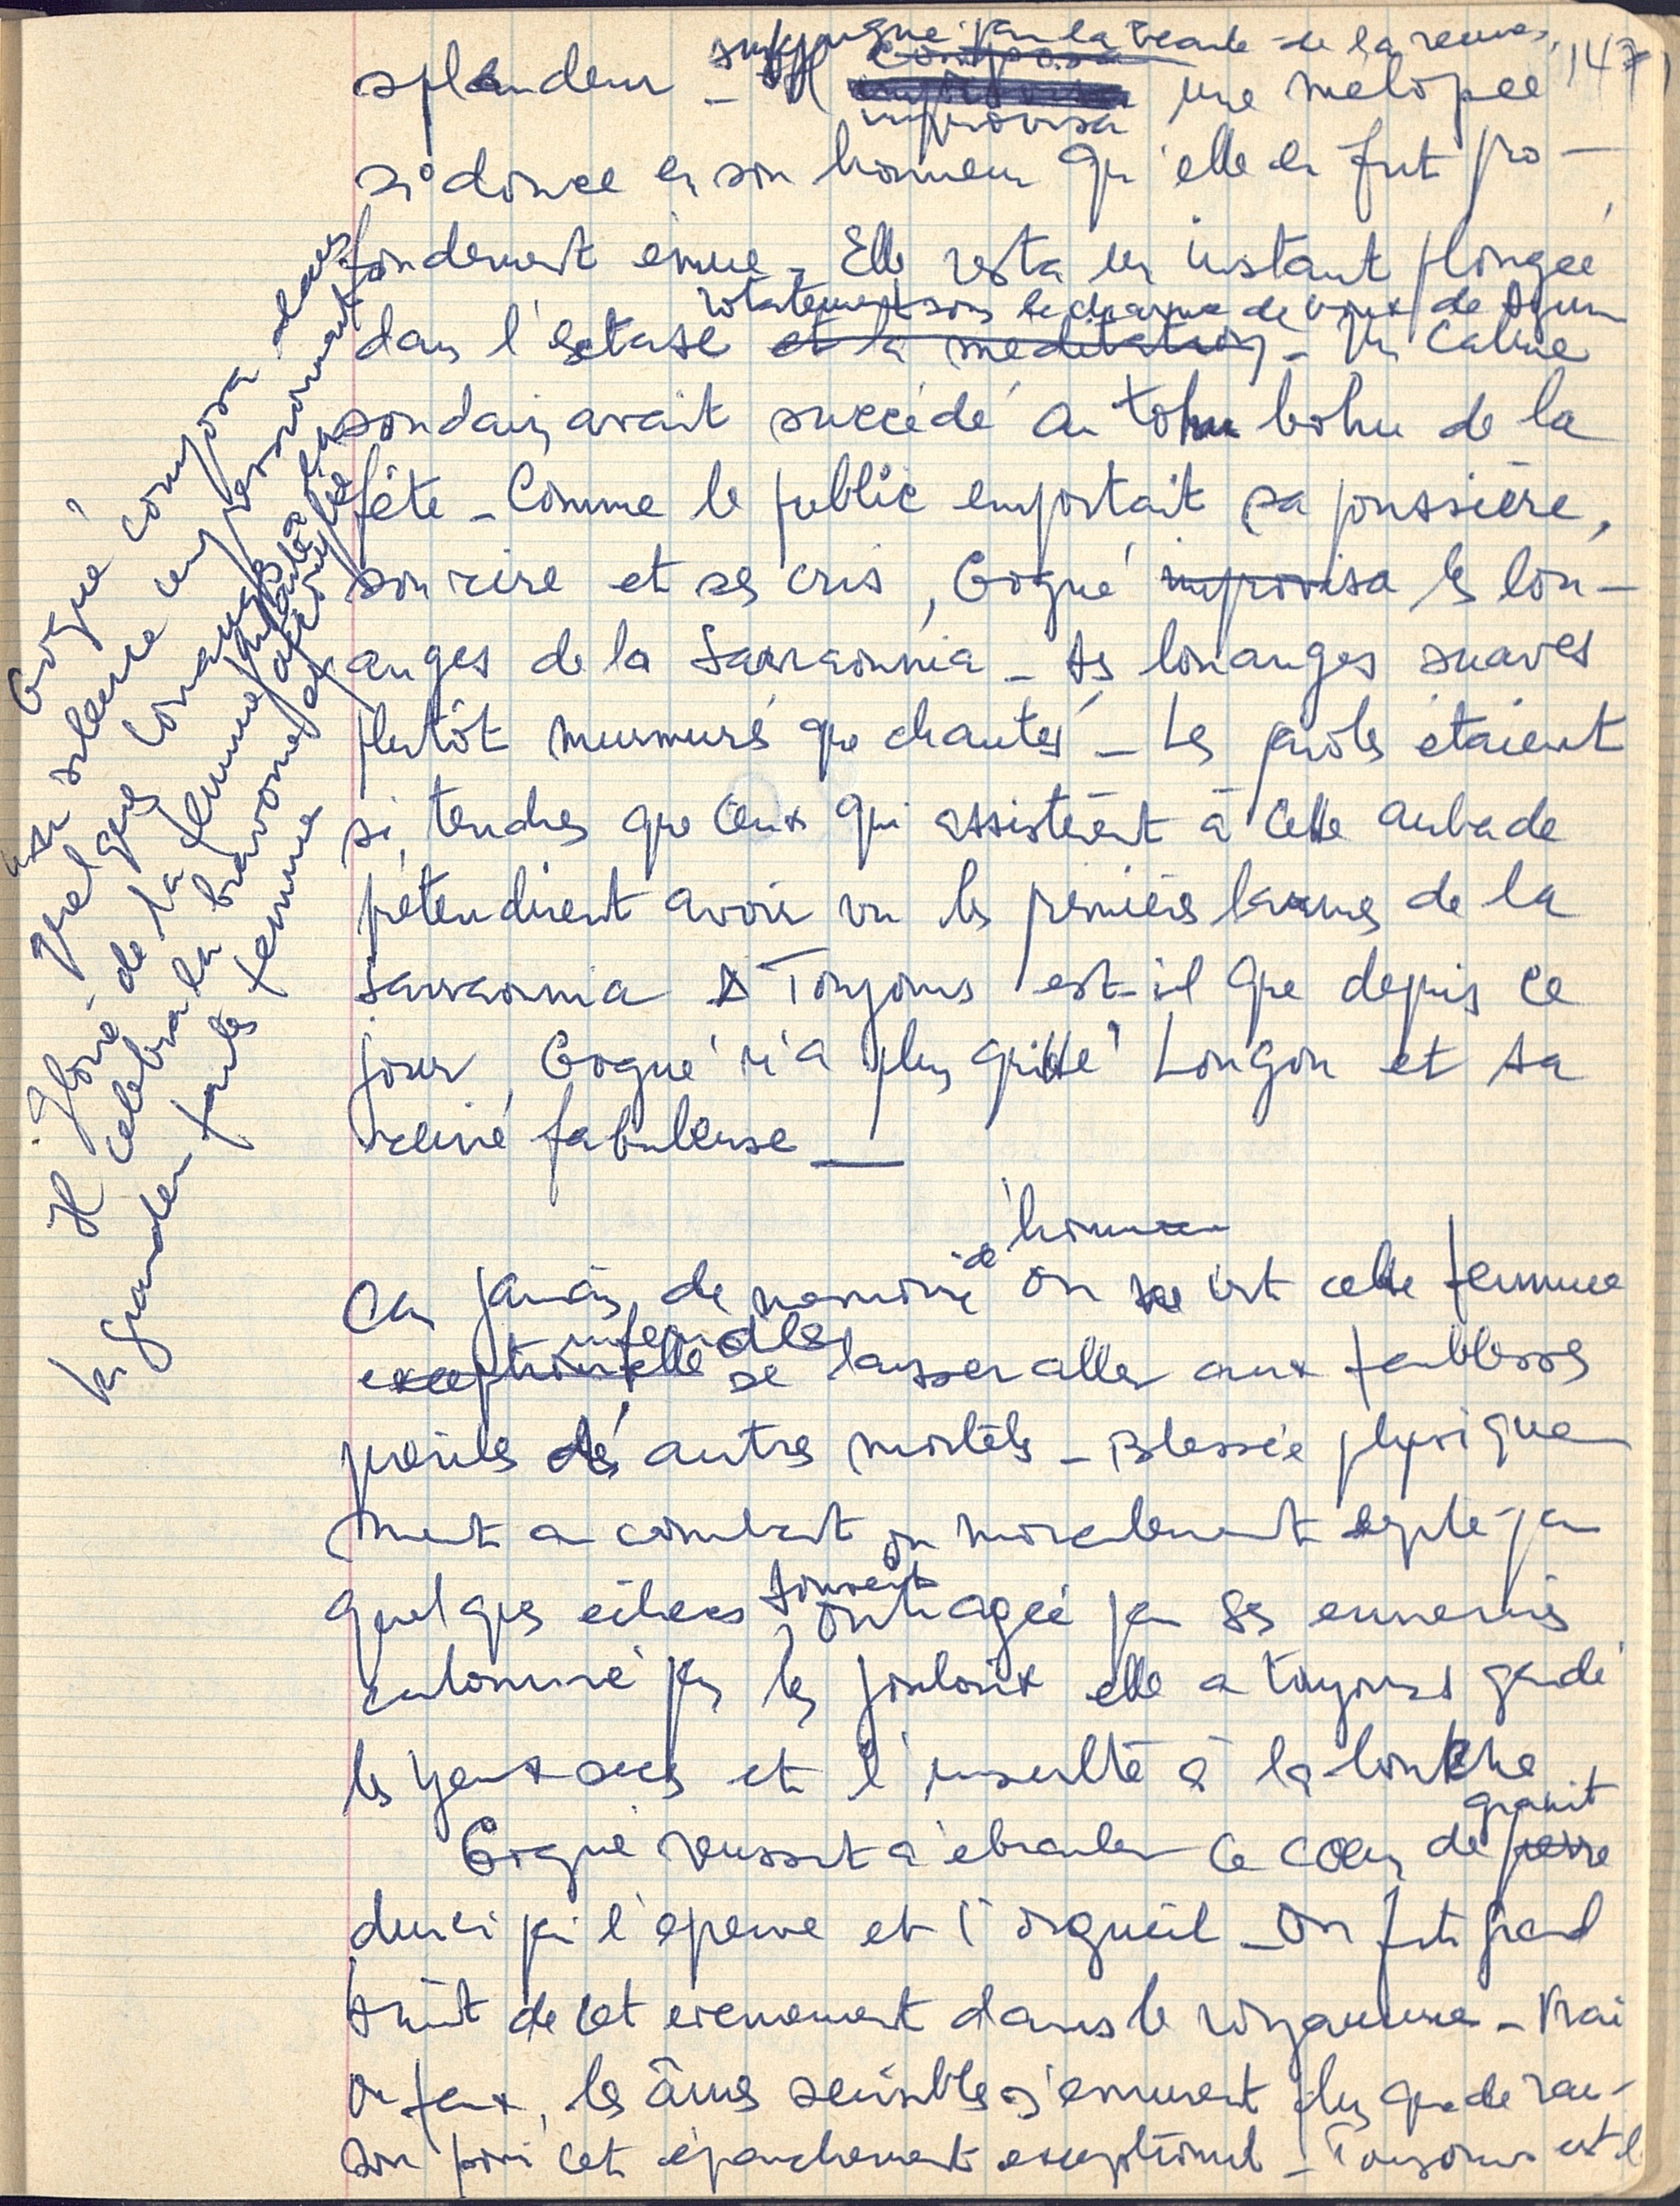 subjugué par la beauté de la reine, 147
splendeur - Il composa une mélopée
improvisa
si douce en son honneur qu'elle en fut pro-
fondement émue - Elle resta un instant plongée
totalement sous le charme de voix de
dans l'extase et la meditation - Un calme
soudain avait succédé au tohu bohu de la
fête - Comme le public emportait sa poussière,
son rire et ses cris, Gogué improvisa les lou-
anges de la Sarraounia - Des louanges suaves
plutôt murmurés que chantés - Les paroles étaient
si tendres que ceux qui assistèrent à cette aubade
prétendirent avoir vu les premières larmes de la
Sarraounia Toujours est-il que depuis ce
jour, Gogué n'a plus quitté Lougou et sa
reine fabuleuse —
Gogué composa dans
un silence
quelques louanges
Il de la femme
célébra la bravoure
la grandeur femme
homme
Car jamais de memoire d' on ne vit cette femme
exceptionnelle se laisser aller aux faiblesses
puériles des autres mortels - Blessée physique
ment au combat ou moralement par
souvent
quelques échecs, outragée par ses ennemis
calomnié par les jaloux elle a toujours gardé
les yeux secs et l'insulte à la bouche
granit
Gogué reussit à ébranler ce coeur de pierre
durci par l'épreuve et l'orgueil - On fit grand
bruit de cet evenement dans le royaume - Vrai
ou faux, les âmes sensibles s'emurent plus que de rai-
son pour cet épanchement exceptionnel - Toujours est il